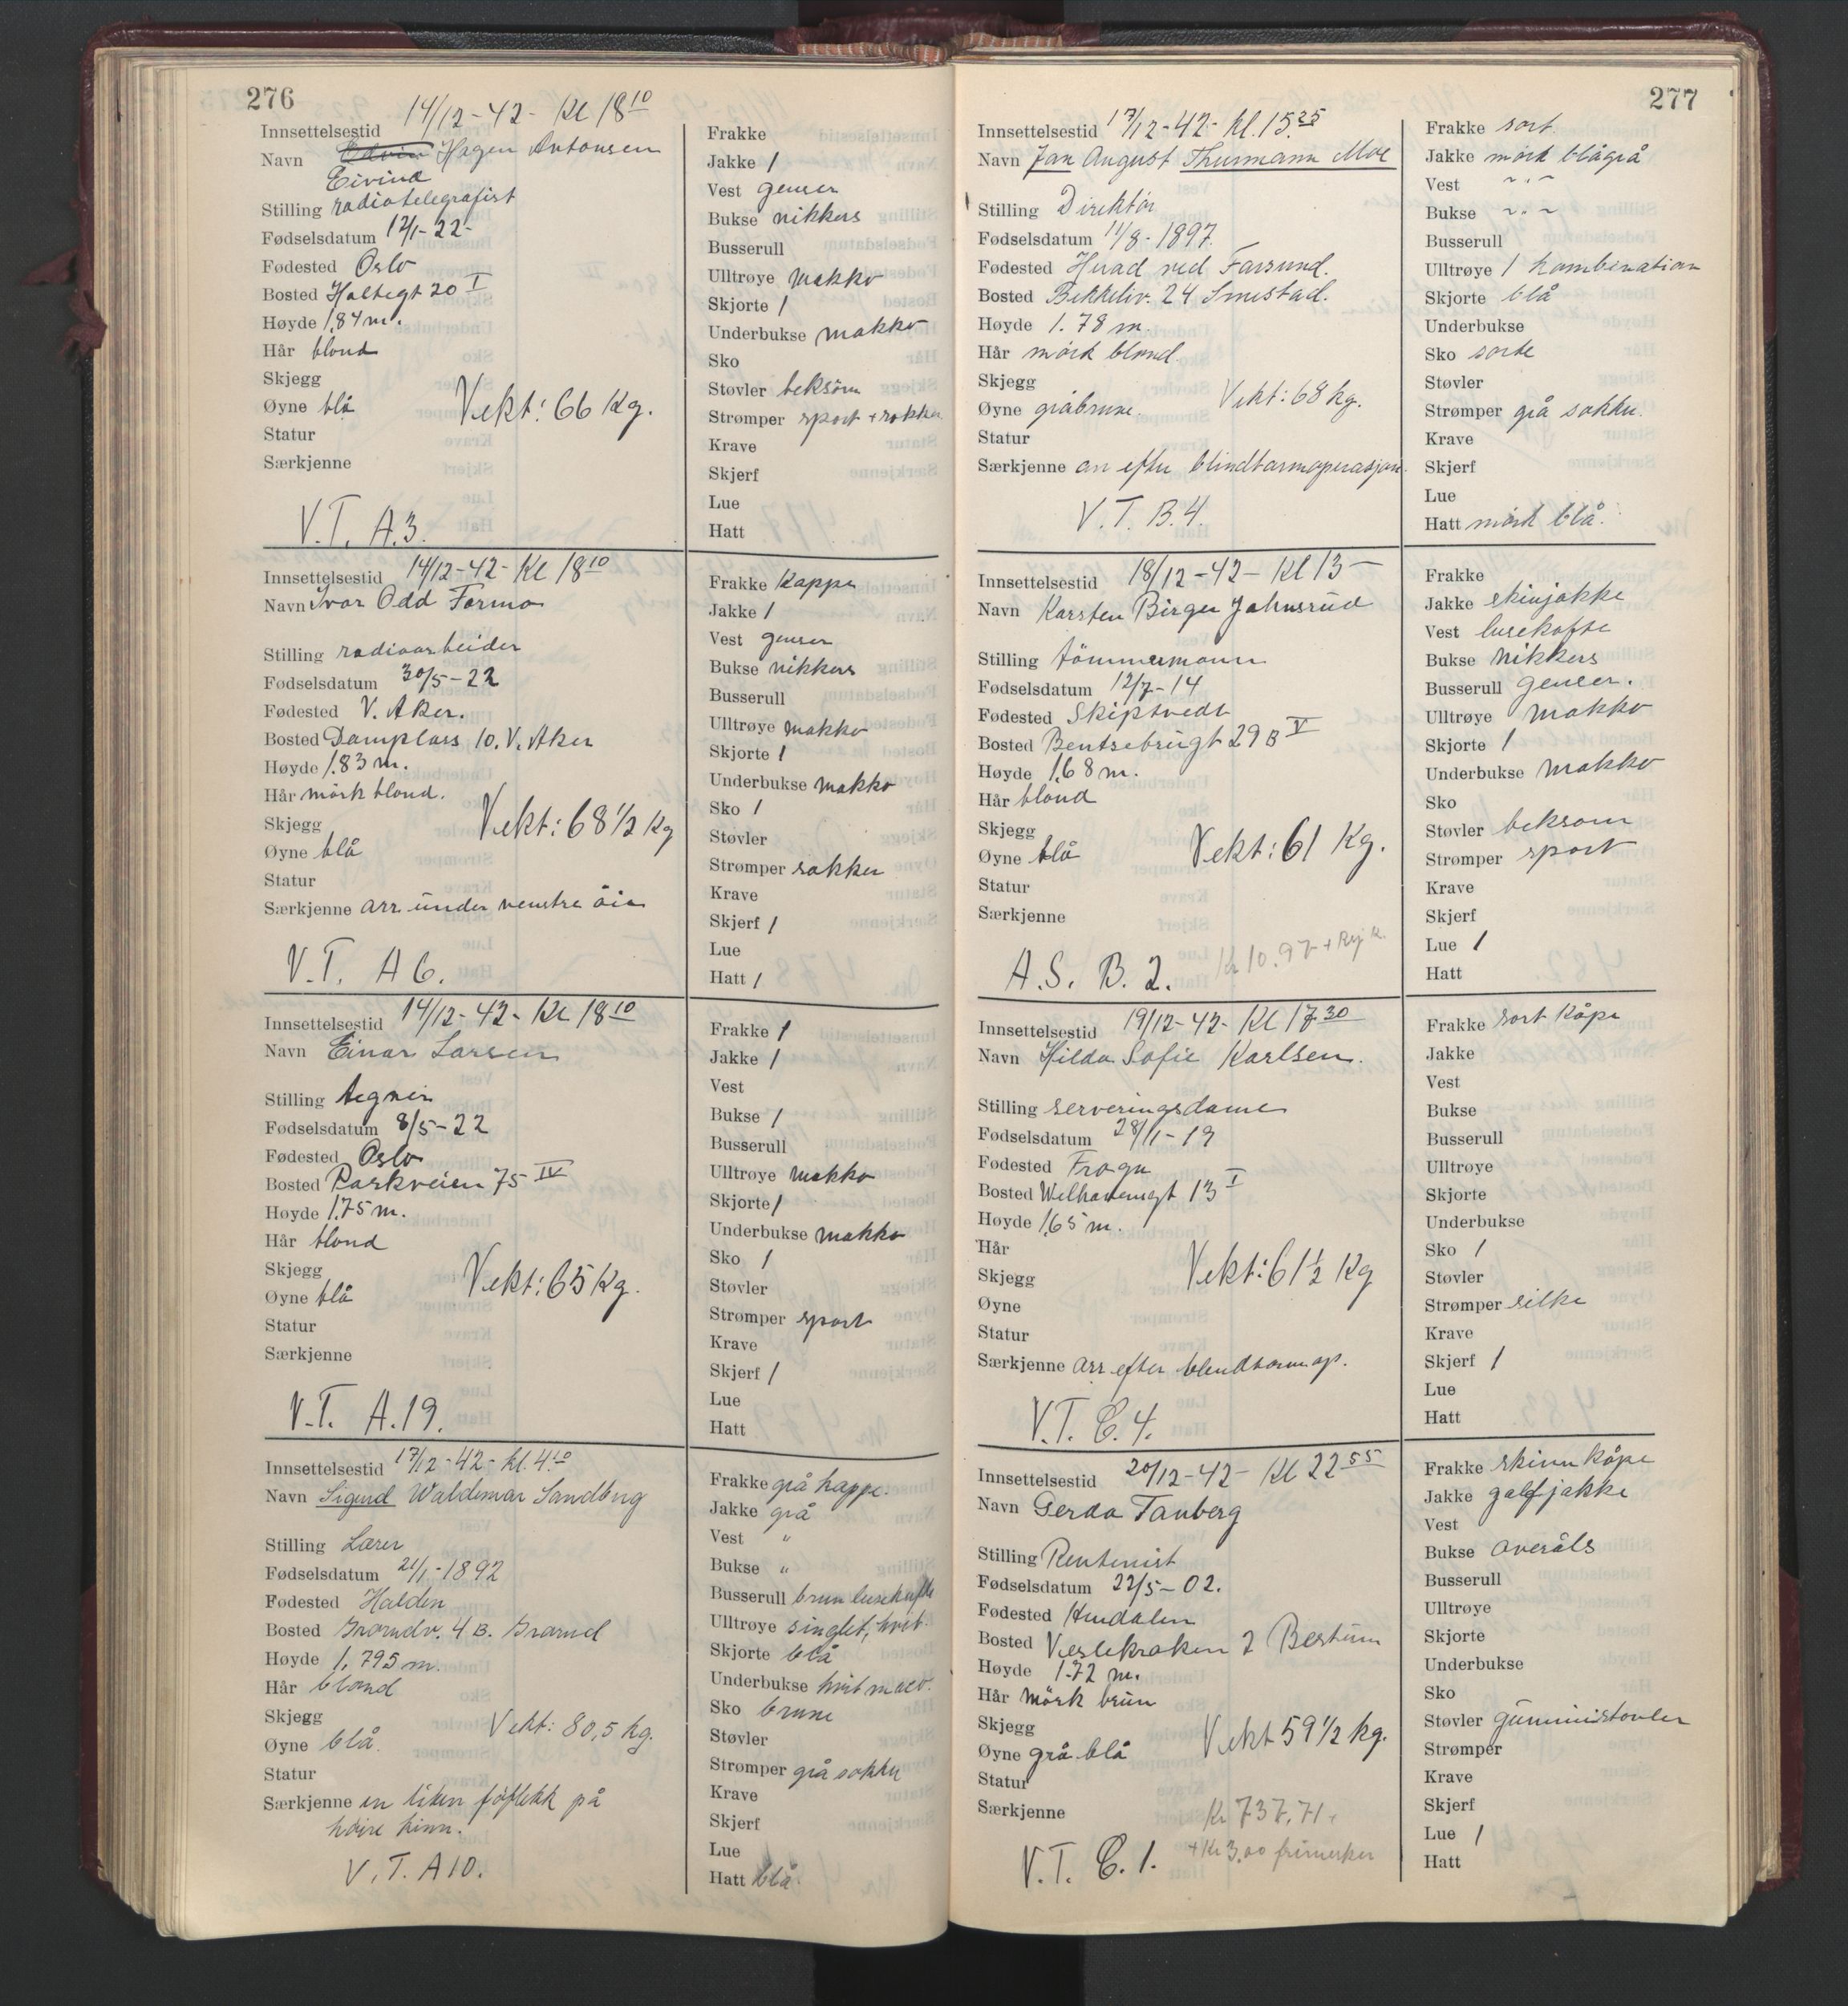 276
Innsettelsestid 14/12-42- Kl 18 10
Navn Edvin Hagen Antonsen
Eivind
Stilling radiotelegrafist
Fødselsdatum 12/1-22-
Fødested Oslo
Bosted Holtegt 20 I
Høyde 1,84 m.
Hår blond
Skjegg
Øyne blå
Vekt: 66 Kg.
Statur
Særkjenne
V.T. A.3.
Frakke
Jakke 1
Vest genser
Bukse nikkers
Busserull
Ulltrøye makko
Skjorte 1
Underbukse makko
Sko
Støvler beksöm
Strømper sport + sokker
Krave
Skjerf
Lue
Hatt
Innsettelsestid 14/12-42- Kl 18 10
Navn Ivar Odd Formo
Stilling radioarbeider
Fødselsdatum 30/5-22
Fødested V. Aker.
Bosted Damplass 10. V. Aker
Høyde 1.83 m.
Hår mörk blond.
Skjegg
Vekt: 68 1/2 Kg
Øyne blå
Statur
Særkjenne arr under venstre öie
V.T. A 6.
Frakke Kappe
Jakke 1
Vest genser
Bukse nikkers
Busserull
Ulltrøye makko
Skjorte 1
Underbukse makko
Sko 1
Støvler
Strømper sokker
Krave
Skjerf 1
Lue
Hatt 1
Innsettelsestid 14/12-42- Kl 18 10
Navn Einar Larsen
Stilling tegner
Fødselsdatum 8/5-22
Fødested Oslo
Bosted Parkveien 75 IV
Høyde 1.75 m.
Hår blond
Skjegg
Vekt: 65 Kg.
Øyne blå
Statur
Særkjenne
V.T. A.19.
Frakke 1
Jakke 1
Vest
Bukse 1
Busserull
Ulltrøye makko
Skjorte 1
Underbukse makko
Sko 1
Støvler
Strømper sport
Krave
Skjerf 1
Lue
Hatt
Innsettelsestid 17/12-42- kl. 4 10
Navn Sigurd Waldemar Sandberg
Stilling Lærer
Fødselsdatum 21/1-1892
Fødested Halden
Bosted 4 B.
Høyde 1,795 m.
Hår blond
Skjegg
Vekt: 80,5 kg.
Øyne blå.
Statur
Særkjenne en liten föflekk på
höire kinn.
V.T. A 10.
Frakke grå kappe.
Jakke grå
Vest "
Bukse "
Busserull brun lusekofte
Ulltrøye singlet, hvit.
Skjorte blå
Underbukse hvit maco.
Sko brune
Støvler
Strømper grå sokker
Krave
Skjerf
Lue
Hatt blå.
277
Innsettelsestid 17/12-42- kl. 15.25
Navn Jan August Thurmann Moe
Stilling Direktör
Fødselsdatum 11/8-1897.
Fødested Herad ved Farsund.
Bosted Bekkeliv. 24 Smestad.
Høyde 1.78 m.
Hår mörk blond.
Skjegg
Vekt: 68 kg.
Øyne gråbrune.
Statur
Særkjenne arr efter blindtarmoperasjon.
V.T. B.4.
Frakke sort.
Jakke mörk blågrå
Vest - " -
Bukse - " -
Busserull
Ulltrøye 1 kombination
Skjorte blå
Underbukse
Sko sorte
Støvler
Strømper grå sokker.
Krave
Skjerf
Lue
Hatt mörk blå.
Innsettelsestid 18/12-42- Kl 13-
Navn Karsten Birger Johnsrud
Stilling tömmermann
Fødselsdatum 12/7-14
Fødested Skiptvedt
Bosted Bentsebrugt 29 B V
Høyde 1,68 m.
Hår blond
Skjegg
Vekt: 61 Kg.
Øyne blå
Statur
Særkjenne
Kr 10.97 +
A.S. B.2.
Frakke
Jakke skinjakke
Vest lusekofte
Bukse nikkers
Busserull genser.
Ulltrøye makko
Skjorte 1
Underbukse makko
Sko
Støvler beksom
Strømper sport
Krave
Skjerf
Lue 1
Hatt
Innsettelsestid 19/12-42- Kl 17 30
Navn Hilda Sofie Karlsen.
Stilling serveringsdame
Fødselsdatum 28/11-19
Fødested Frogn
Bosted Welhavensgt 13 I
Høyde 1,65 m.
Hår
Skjegg
Vekt: 61 1/2 Kg
Øyne
Statur
Særkjenne arr efter blendtarmop.
V.T. C.4.
Frakke sort Kåpe
Jakke
Vest
Bukse
Busserull
Ulltrøye
Skjorte
Underbukse
Sko 1
Støvler
Strømper silke
Krave
Skjerf 1
Lue
Hatt
Innsettelsestid 20/12-42- Kl 22 55
Navn Gerda Tanberg
Stilling Rentenist
Fødselsdatum 22/5-02.
Fødested Hemdalen
Bosted Veslekroken 2 Bestum
Høyde 1.72 m.
Hår mörk brun
Skjegg
Vekt 59 1/2 kg.
Øyne grå-blå
Statur
Særkjenne
Kr 737,71.
+ Kr 3,00 frimerker
V.T. C.1.
Frakke skinn Kåpe
Jakke golfjakke
Vest
Bukse overåls
Busserull
Ulltrøye
Skjorte
Underbukse
Sko
Støvler gummistovler
Strømper
Krave
Skjerf
Lue 1
Hatt